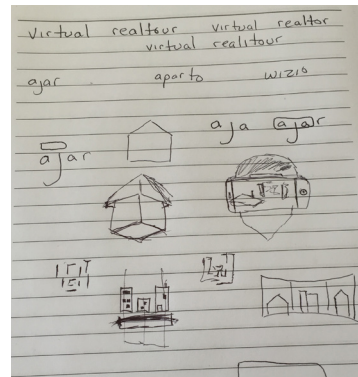 virtual realtour virtual realtor
virtual realitour
ajar aparto wizio
aja ajar
ajar